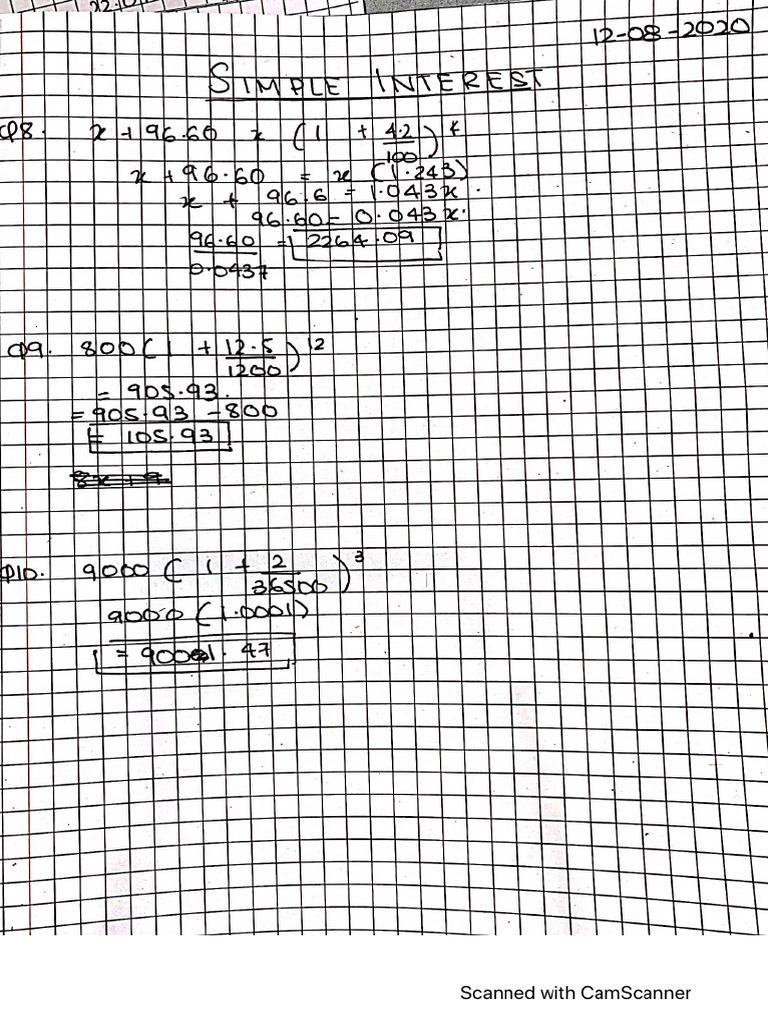 12-08-2020
SIMPLE INTEREST
Q8. x + 96.60 x (1 + 4.2/100)^t
x + 96.60 = x (1.243)
x + 96.6 = 1.043x.
96.60 = 0.043x.
96.60/0.0437 = 2264.09
Q9. 800 (1 + 12.5/1200)^12
= 905.93.
= 905.93 - 800
= 105.93
Q10. 9000 (1 + 2/36500)^3
9000 (1.0001)
= 9001.47
Scanned with CamScanner